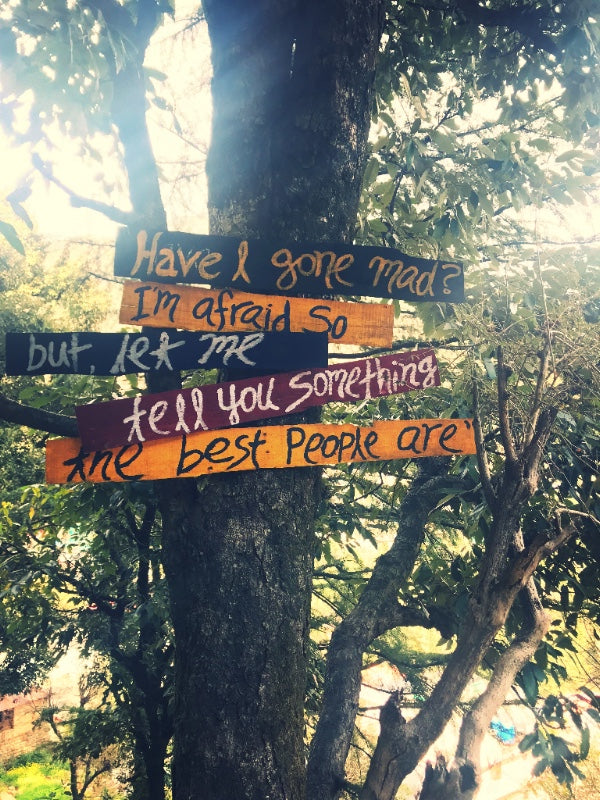 Have I gone mad?
I'm afraid So
but, let me
tell you something
the best People are"